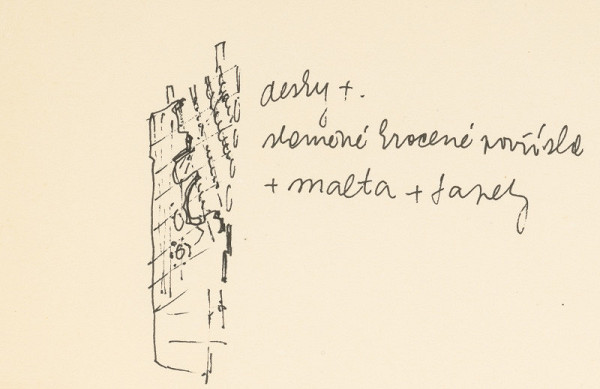 desky +.
slaměné krocené povřísla
+ malta + tapety